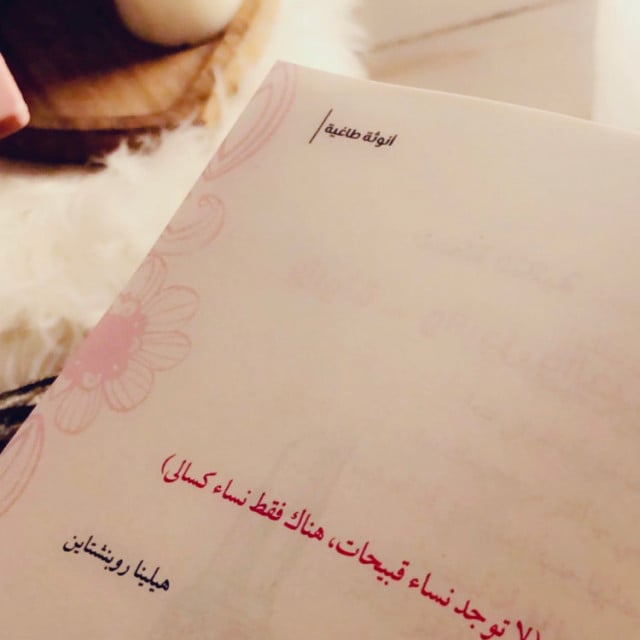 انوثة طاغية
(لا توجد نساء قبيحات، هناك فقط نساء كسالى)
هيلينا روبنشتاين